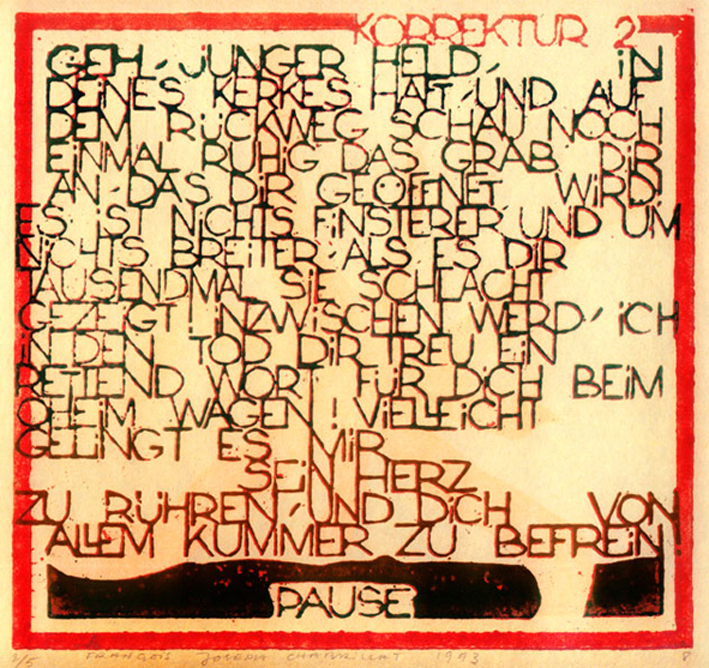 KORREKTUR 2
GEH, JUNGER HELD, IN
DEINES KERKES HAFT, UND AUF
DEM RÜCKWEG SCHAU NOCH
EINMAL RUHIG DAS GRAB DIR
AN, DAS DIR GEÖFFNET WIRD!
ES IST NICHTS FINSTERER UND UM
NICHTS BREITER, ALS ES DIR
TAUSENDMAL SIE SCHLACHT
GEZEIGT! INZWISCHEN WERD, ICH
IN DEN TOD DIR TREU EIN
RETTEND WORT FÜR DICH BEIM
OHEIM WAGEN! VIELLEICHT
GELINGT ES MIR
SEIN HERZ
ZU RÜHREN, UND DICH VON
ALLEM KUMMER ZU BEFREIN!
PAUSE
2/5 FRANÇOIS JOSEPH 1993